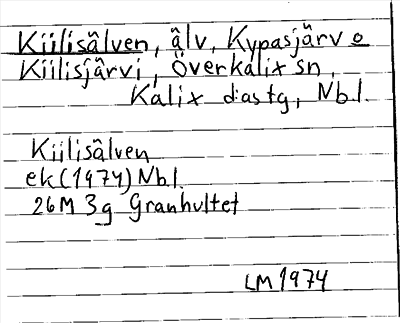 Kiilisälven, älv, Kypasjärv o
Kiilisjärvi, Överkalix sn,
Kalix dastg, Nbl.
Kiilisälven
ek (1974) Nbl.
26M 3g Granhultet
LM 1974